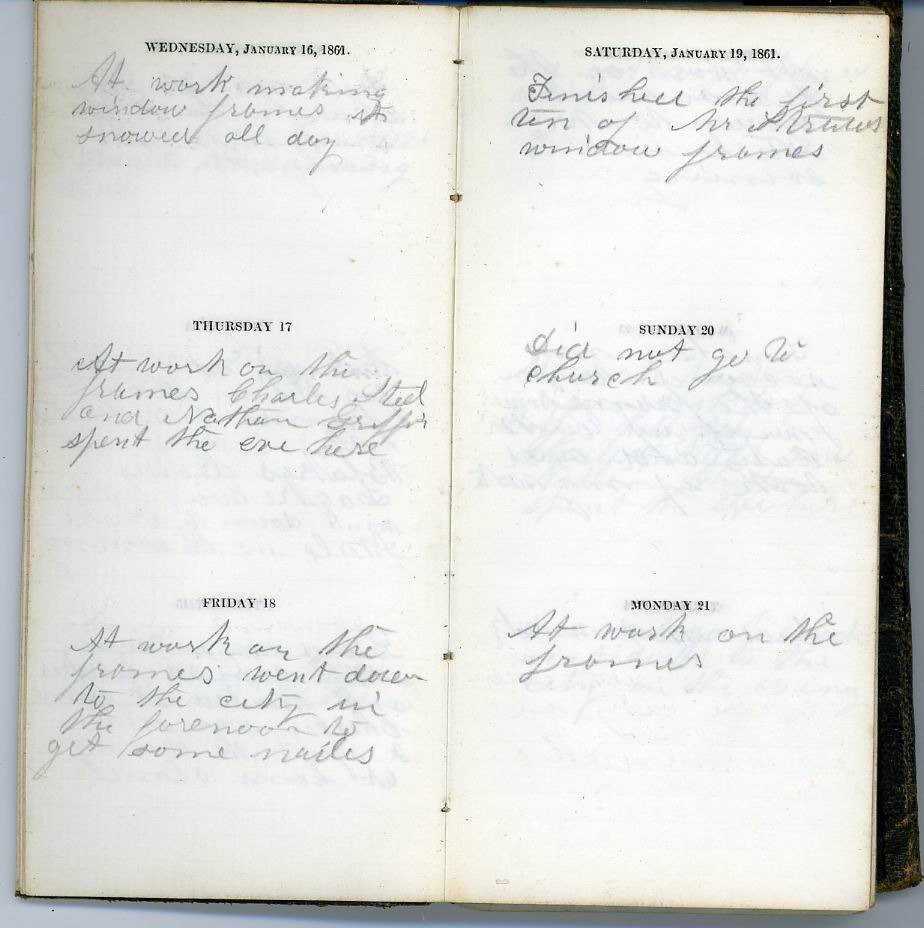 WEDNESDAY, JANUARY 16, 1861.
At work making
window frames it
snowed all day
THURSDAY 17
At work on the
frames Charles Steel
and Nathan
spent the eve here
FRIDAY 18
At work on the
frames went down
to the city in
the forenoon to
get some nailes
SATURDAY, JANUARY 19, 1861.
Finished the first
ten of Mr
window frames
SUNDAY 20
Did not go to
church
MONDAY 21
At work on the
frames